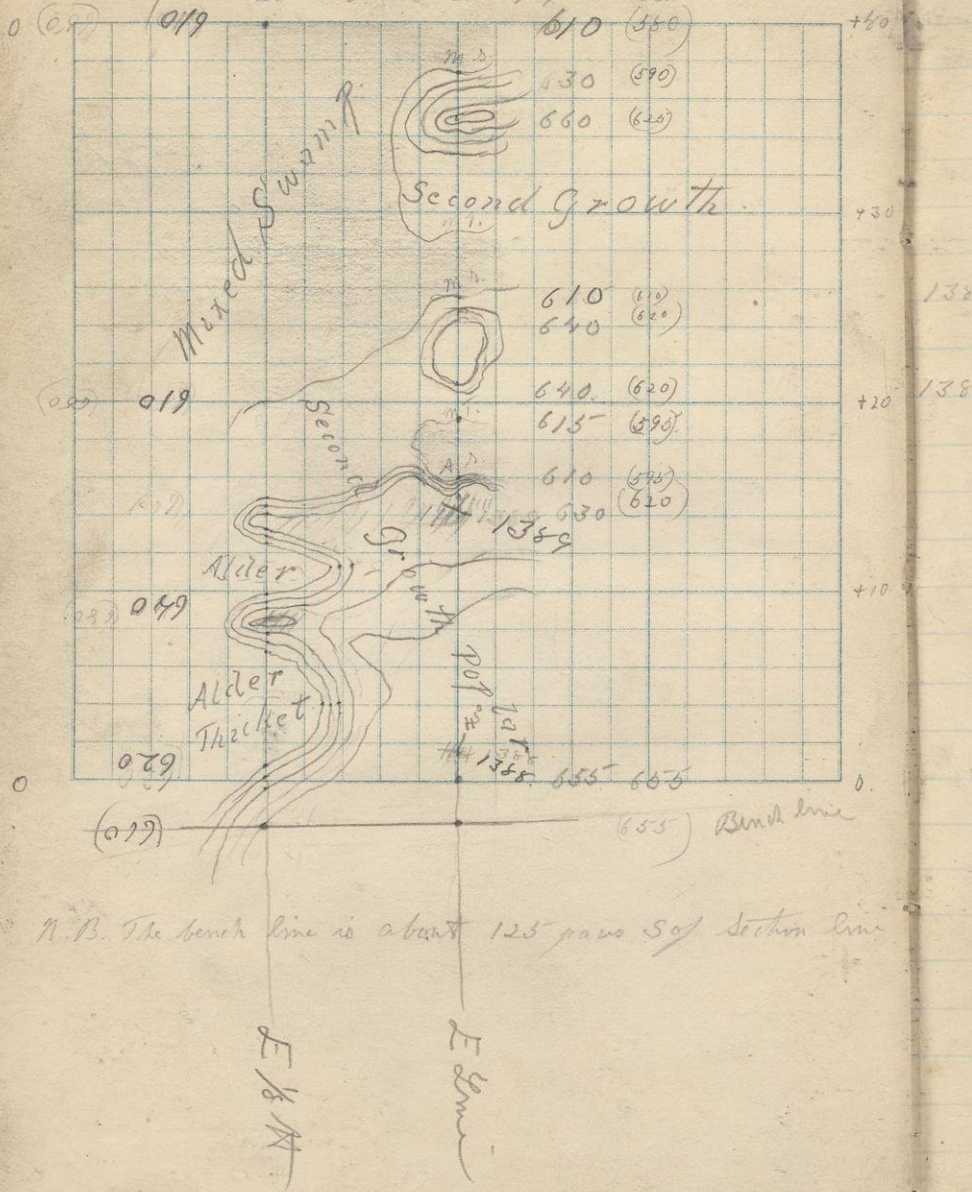 0 610 610 (580) +40
m.s.
630 (590)
660 (625)
Mixed Swamp
Second Growth.
+30
m.s.
610 (610)
640 (620)
138
610 640 (620) +20 138
615 (595)
Second Growth
A.S.
610 (595)
630 (620)
1389
Alder
640 +10
Alder
Thicket
Poplar
620 1388 655 655
0 0.
(610) (655) Bench line
N.B. The bench line is about 125 paces S of Section line
E 1/8 E Line